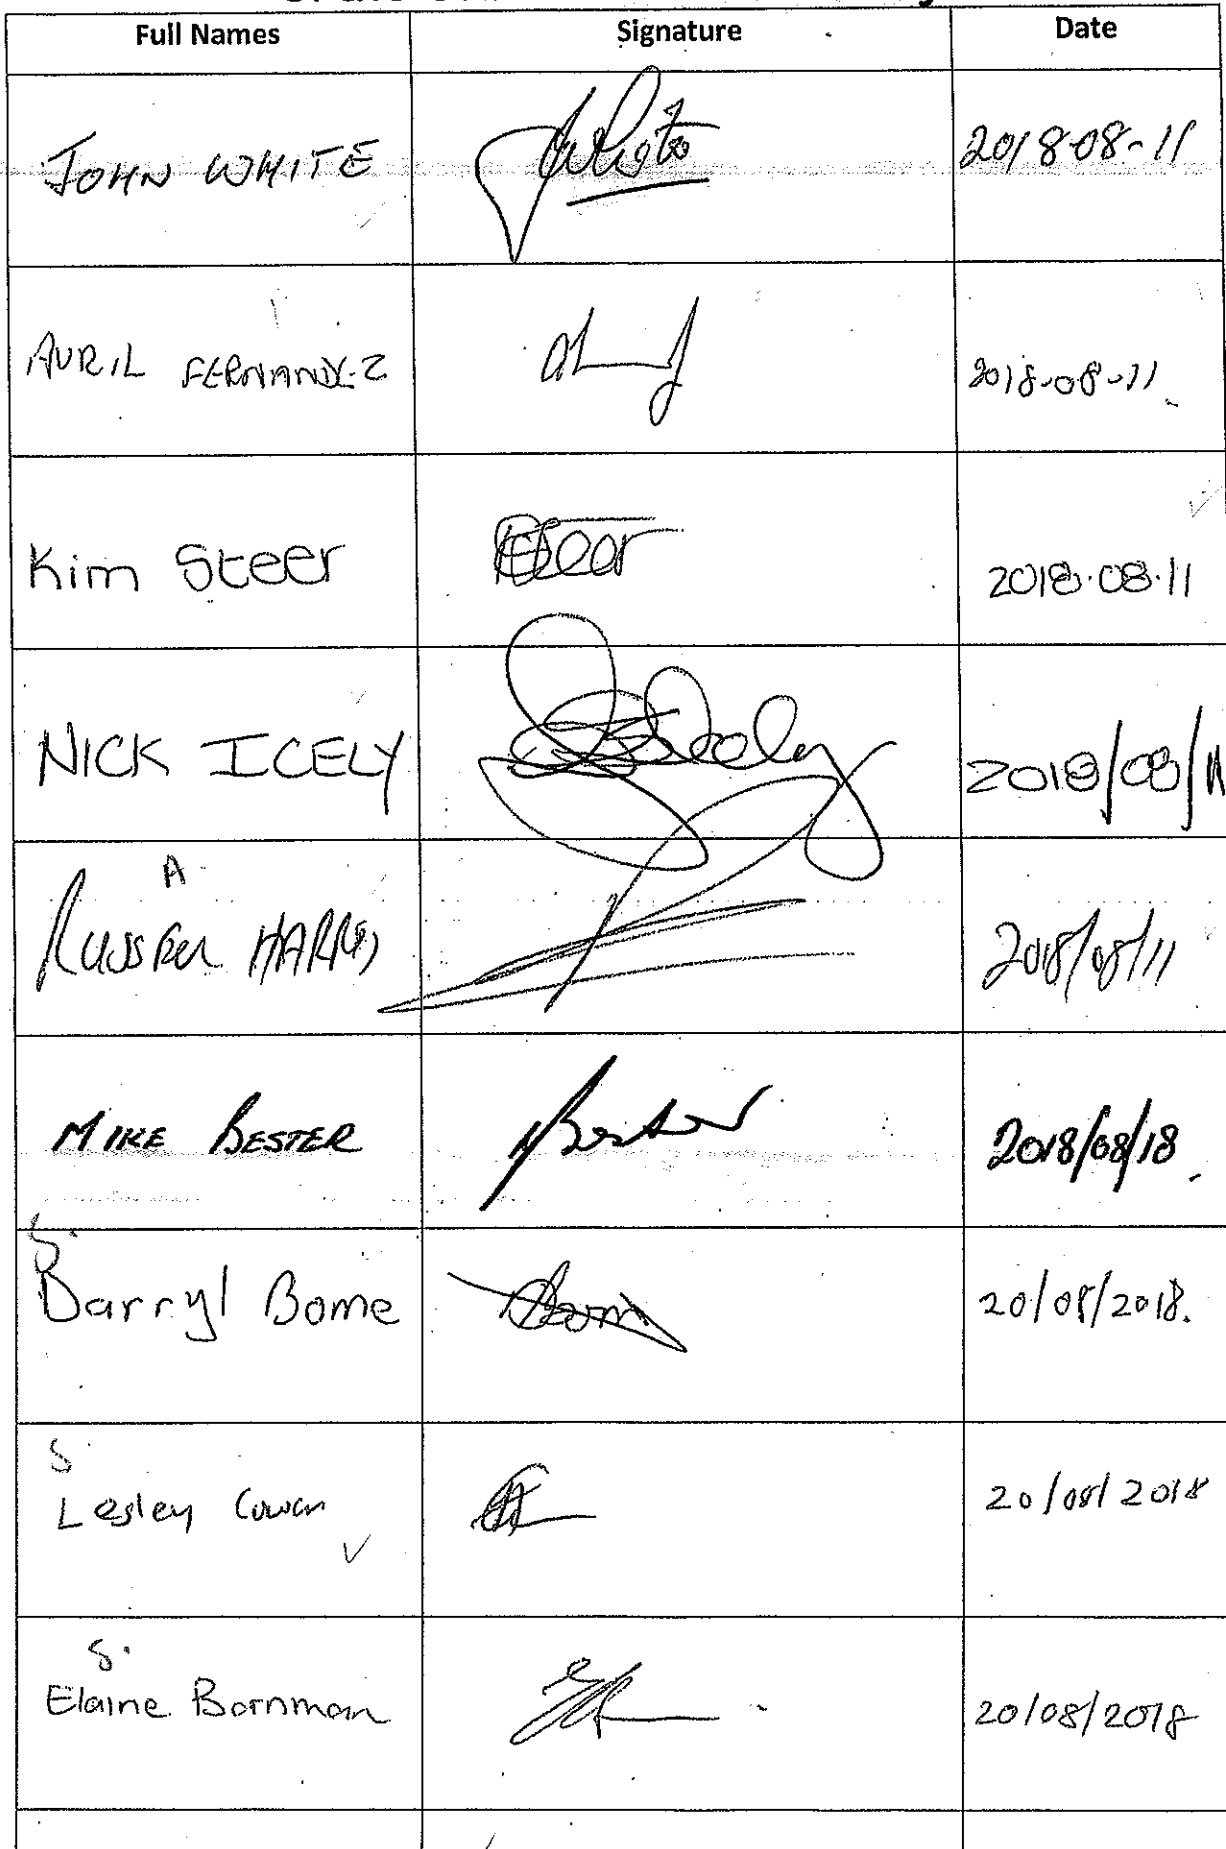 Full Names Signature Date
JOHN WHITE JWhite 2018-08-11
AVRIL FERNANDEZ 2018-08-11
Kim Steer KSteer 2018.08.11
NICK ICELY Icely 2018/08/11
A
RUSSELL HARRIS 2018/08/11
MIKE BESTER MBester 2018/08/18
S.
Darryl Bome Bom 20/08/2018.
S
Lesley Cowan 20/08/2018
S.
Elaine Bornman 20/08/2018